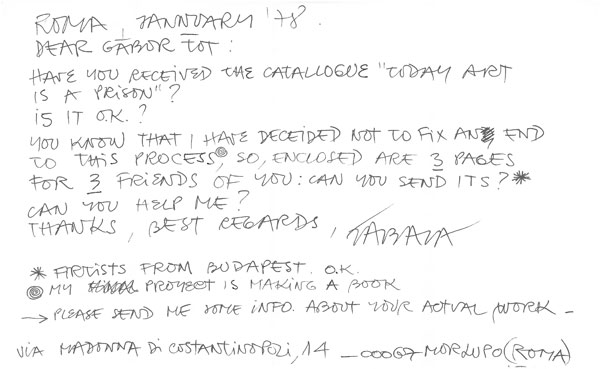 ROMA, JANNUARY '78.
DEAR GÁBOR TOT:
HAVE YOU RECEIVED THE CATALLOGUE "TODAY ART
IS A PRISON"?
IS IT O.K.?
YOU KNOW THAT I HAVE DECEIDED NOT TO FIX AN END
TO THIS PROCESS, SO, ENCLOSED ARE 3 PAGES
FOR 3 FRIENDS OF YOU: CAN YOU SEND ITS? *
CAN YOU HELP ME?
THANKS, BEST REGARDS,
* ARTISTS FROM BUDAPEST. O.K.
MY PROYECT IS MAKING A BOOK
→ PLEASE SEND ME SOME INFO. ABOUT YOUR ACTUAL WORK -
VIA MADONNA DI COSTANTINOPOLI, 14 _ 00067 MORLUPO (ROMA)